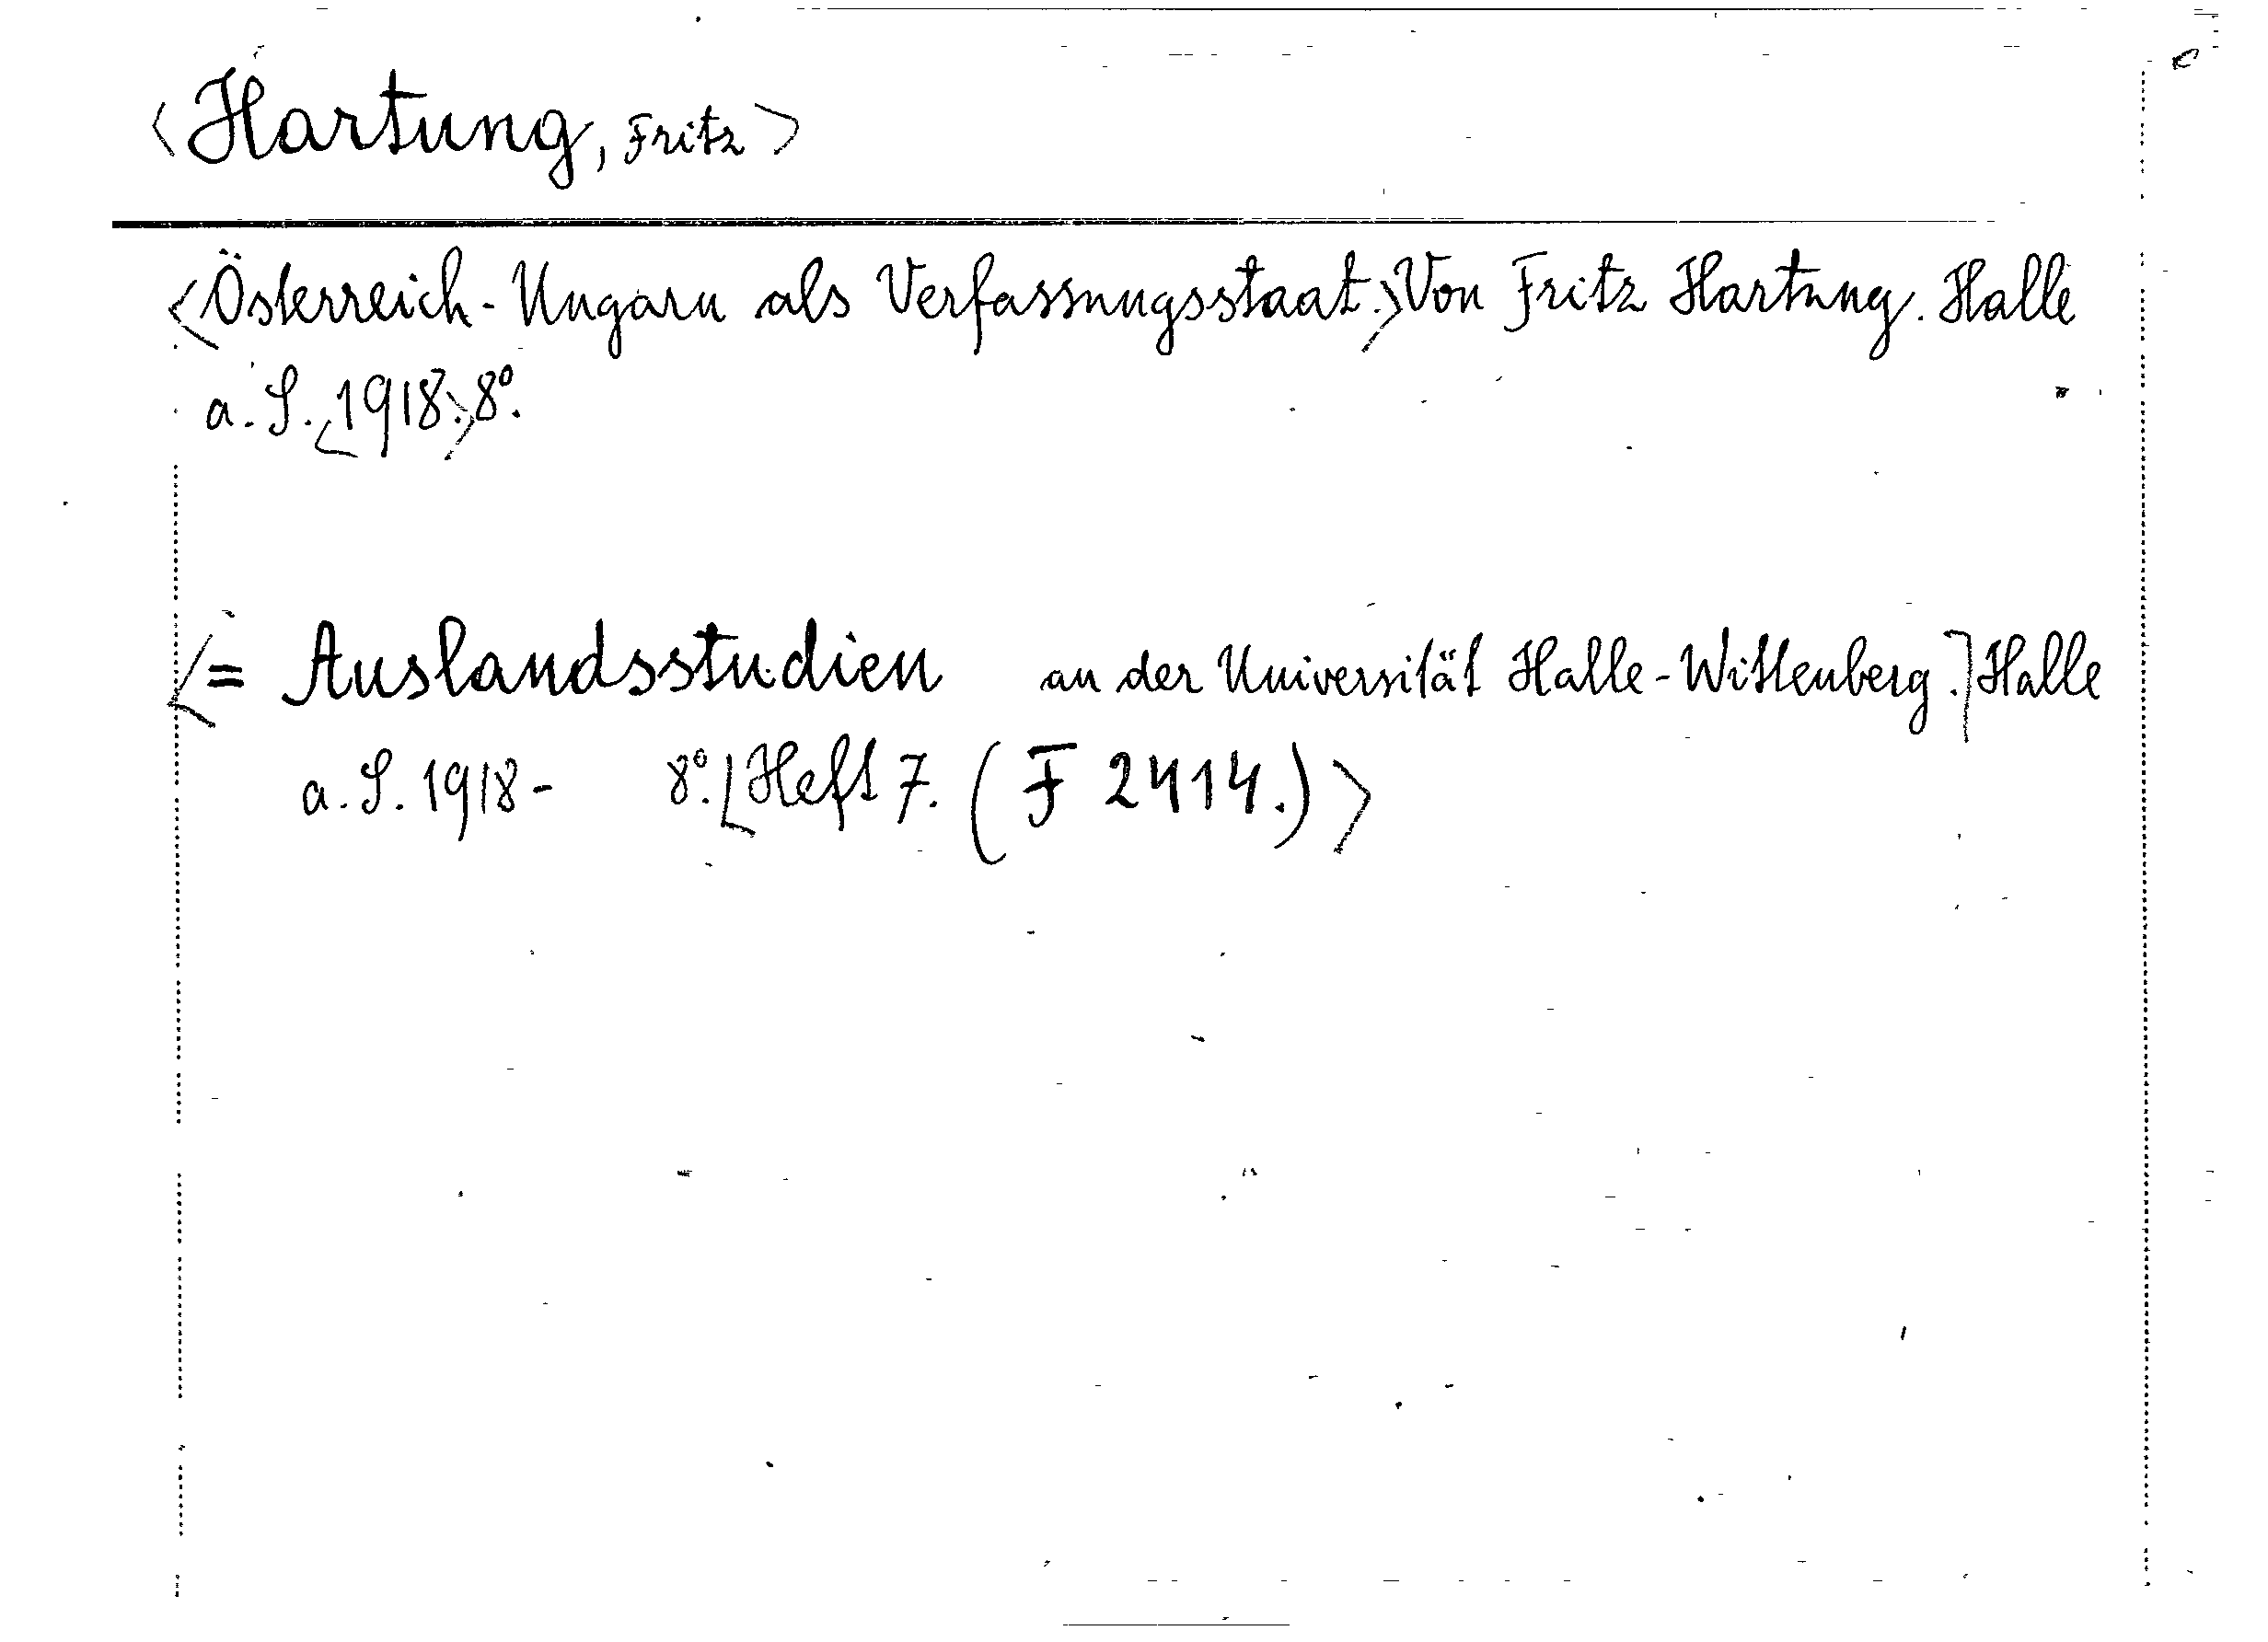 <Hartung, Fritz>
<Österreich-Ungarn als Verfassungsstaat.> Von Fritz Hartung. Halle
a. S. <1918.> 8°.
<= Auslandsstudien an der Universität Halle-Wittenberg.] Halle
a. S. 1918- 8°. [Heft 7. (F 2414.)>